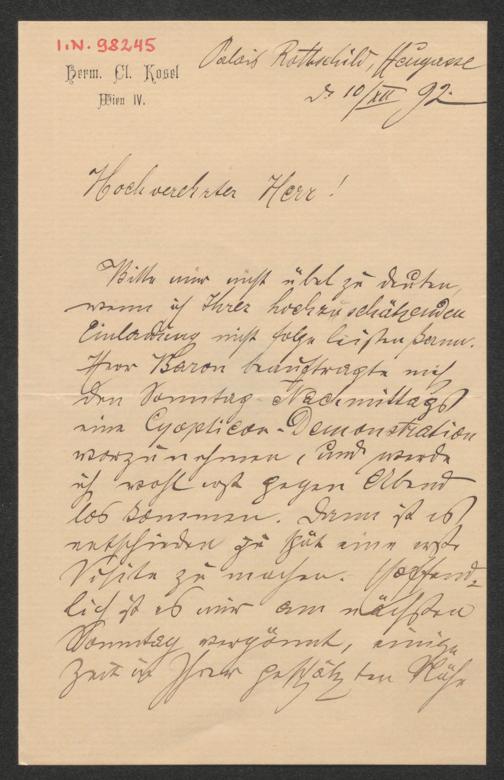 I.N. 98245
Herm. Cl. Kosel
Wien IV.
Palais Rothschild, Heugasse
d. 10/XII 92.
Hochverehrter Herr!
Bitte mir nicht übel zu deuten,
wenn ich Ihrer hochzuschätzenden
Einladung nicht folge leisten kann.
Herr Baron beauftragte mich
den Sonntag Nachmittags
eine Cyopticon-Demonstration
vorzunehmen, und werde
ich wohl erst gegen Abend
los kommen. Dann ist es
entschieden zu spät eine erste
Visite zu machen. Hoffent-
lich ist es mir am nächsten
Sonntag vergönnt, einige
Zeit in Ihrer geschätzten Nähe